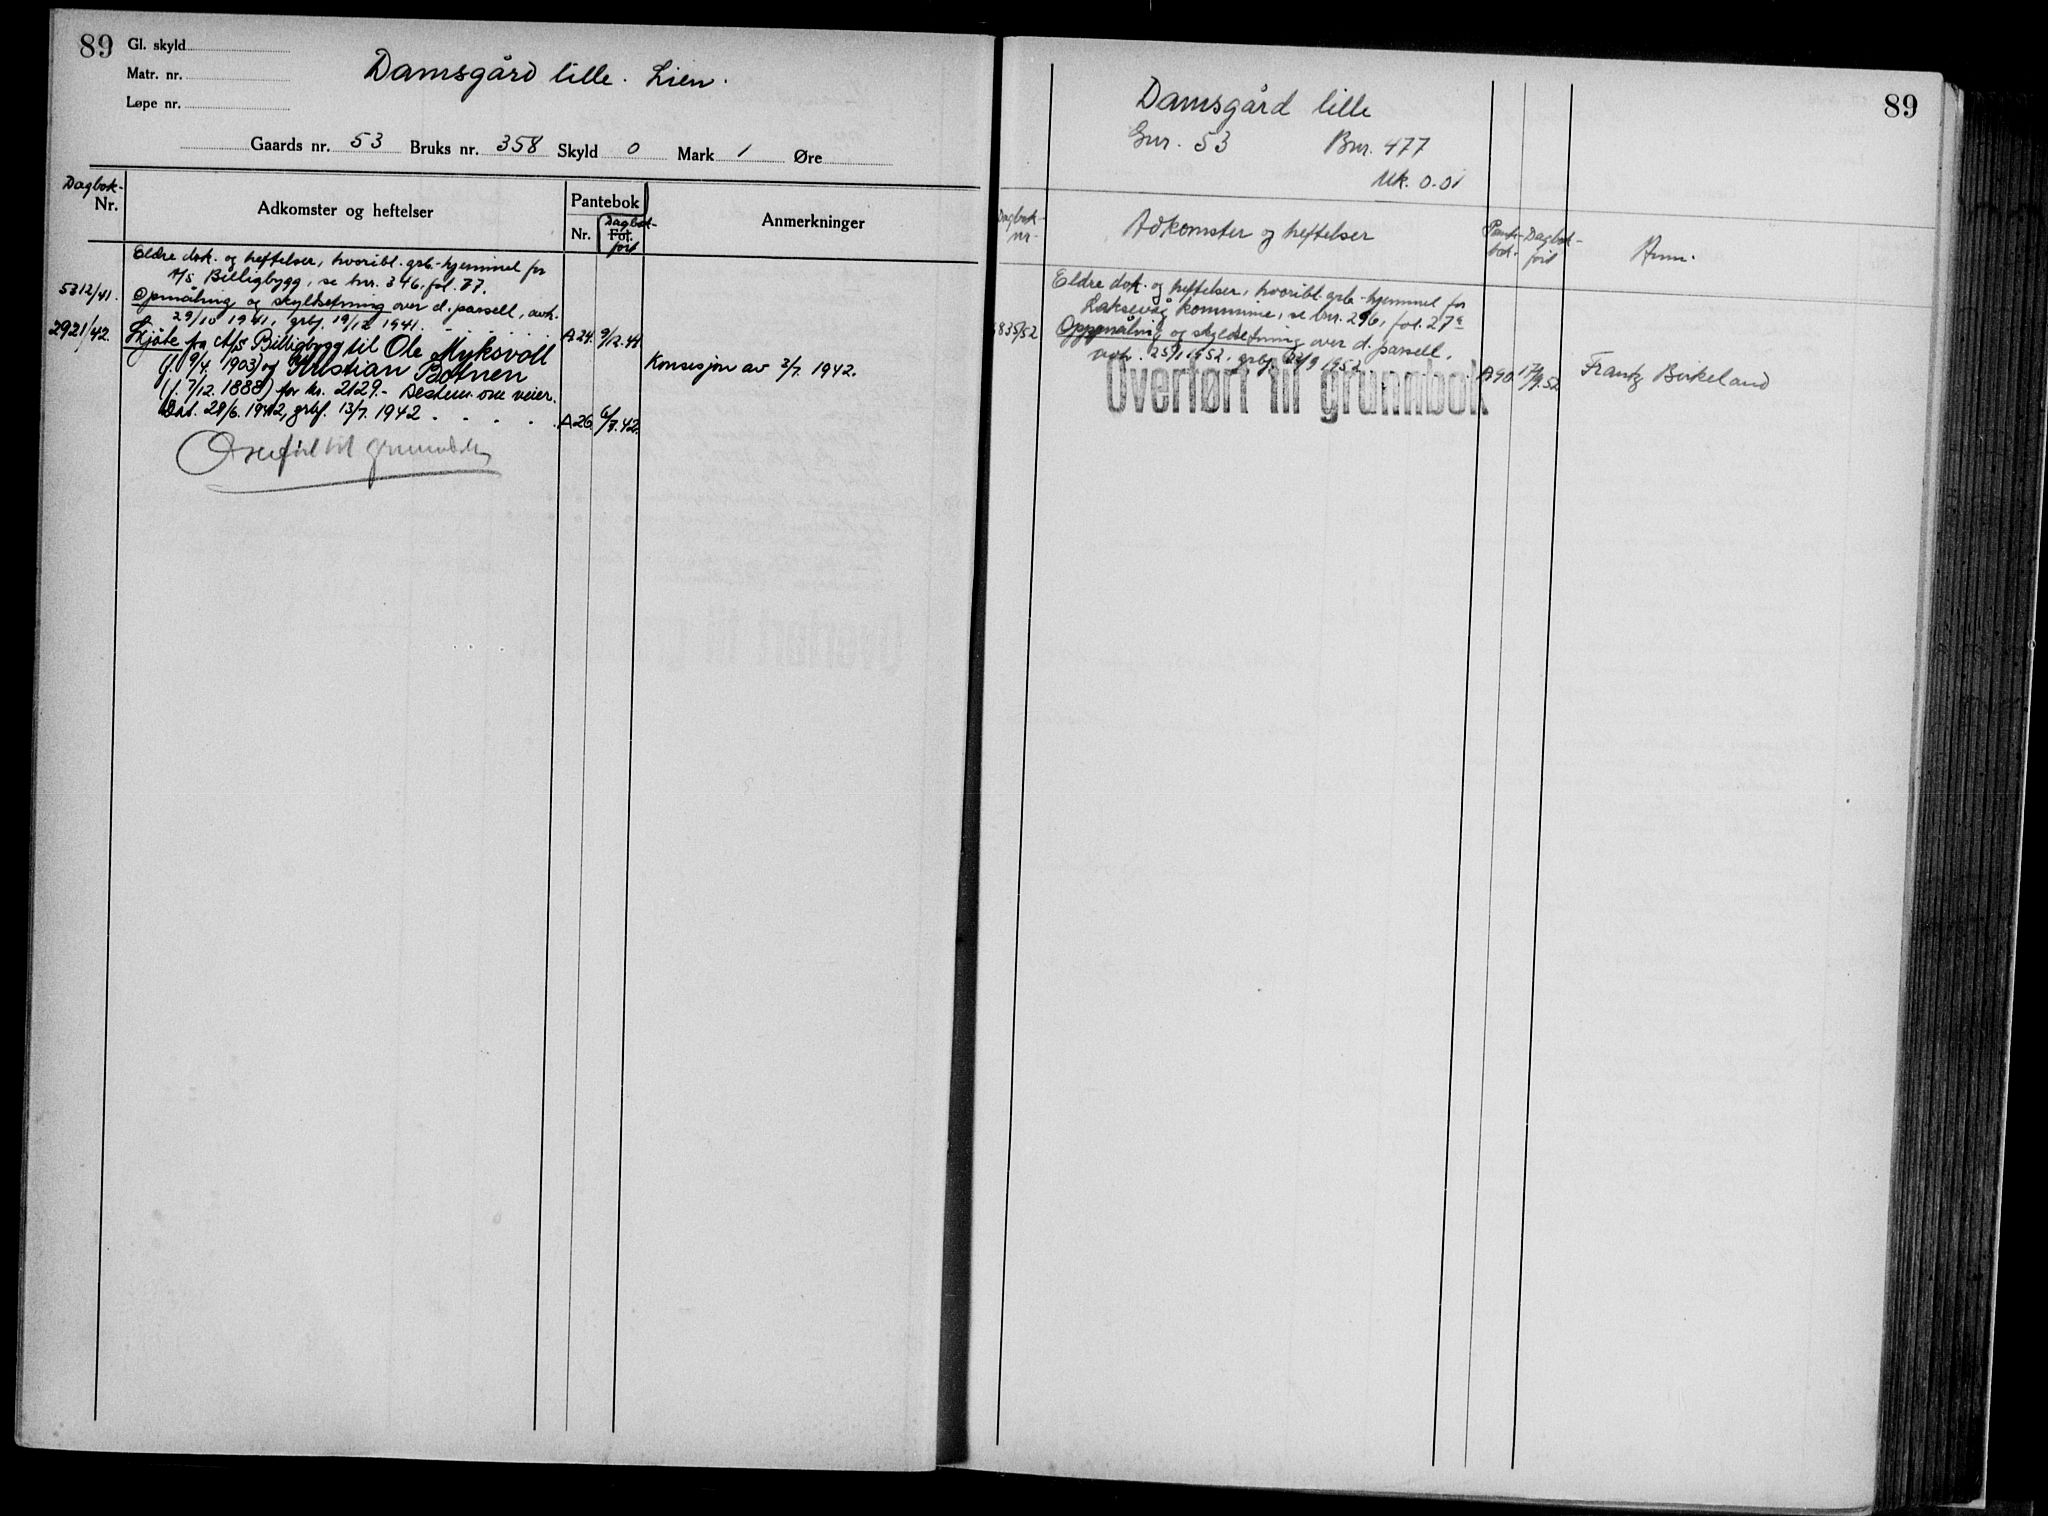 89
Gl. skyld
Matr. nr.
Løpe nr.
Damsgård lille. Lien.
Gaards nr. 53 Bruks nr. 358 Skyld 0 Mark 1 Øre
Dagbok-
Nr.
Adkomster og heftelser
Pantebok
Nr.
Dagbok-
Fol.
ført
Anmerkninger
Eldre dok. og heftelser, hvoribl. grb.-hjemmel for
A/S Billigbygg, se bnr. 346, fol. 77.
5312/41. Opmåling og skyldsetning over d. parsell, avh.
29/10 1941, grbf. 19/12 1941. A24. 9/12.41
2921/42. Skjøte fra A/S Billigbygg til Ole Myksvoll
(f. 9/4. 1903) og Kristian Botnen
(f. 7/12. 1888) for kr. 2129.- Bestem. om veier.
Dat. 28/6. 1942, grbf. 13/7. 1942 A26. 6/7.42.
Konsesjon av 3/7. 1942.
Overført til grunnboken
89
Damsgård lille
Gnr. 53 Bnr. 477
Mk. 0.01
Dagbok-
nr.
Adkomster og heftelser
Pante-
bok.
Dagbok-
ført
Anm.
Eldre dok. og heftelser, hvoribl. grb.-hjemmel for
Laksevåg kommune, se bnr. 296, fol. 27a
835/52 Oppmåling og skyldsetning over d. parsell,
avh. 25/1 1952, grbf. /9 1952 A90 17/9.52
Frantz Birkeland
Overført til grunnbok